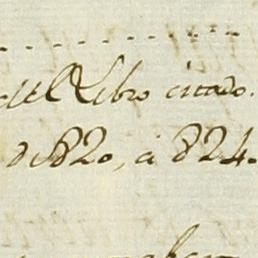 del Libro citado.
de 820, a 824.